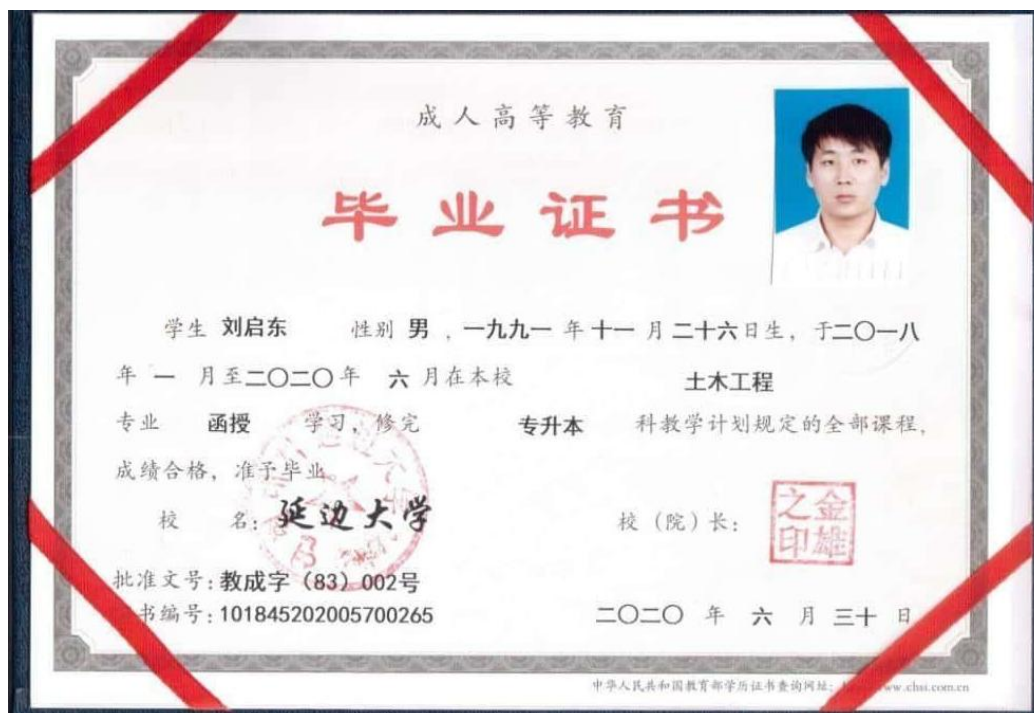 成人高等教育
毕业证书
学生 刘启东 性别 男 ，一九九一 年 十一 月 二十六日生，于二〇一八
年 一 月至二〇二〇年 六 月在本校 土木工程
专业 函授 学习，修完 专升本 科教学计划规定的全部课程，
成绩合格，准予毕业
校 名：延边大学 校（院）长：
之金
印雄
批准文号：教成字（83）002号
书编号：101845202005700265 二〇二〇 年 六 月 三十 日
中华人民共和国教育部学历证书查询网址： www.chsi.com.cn